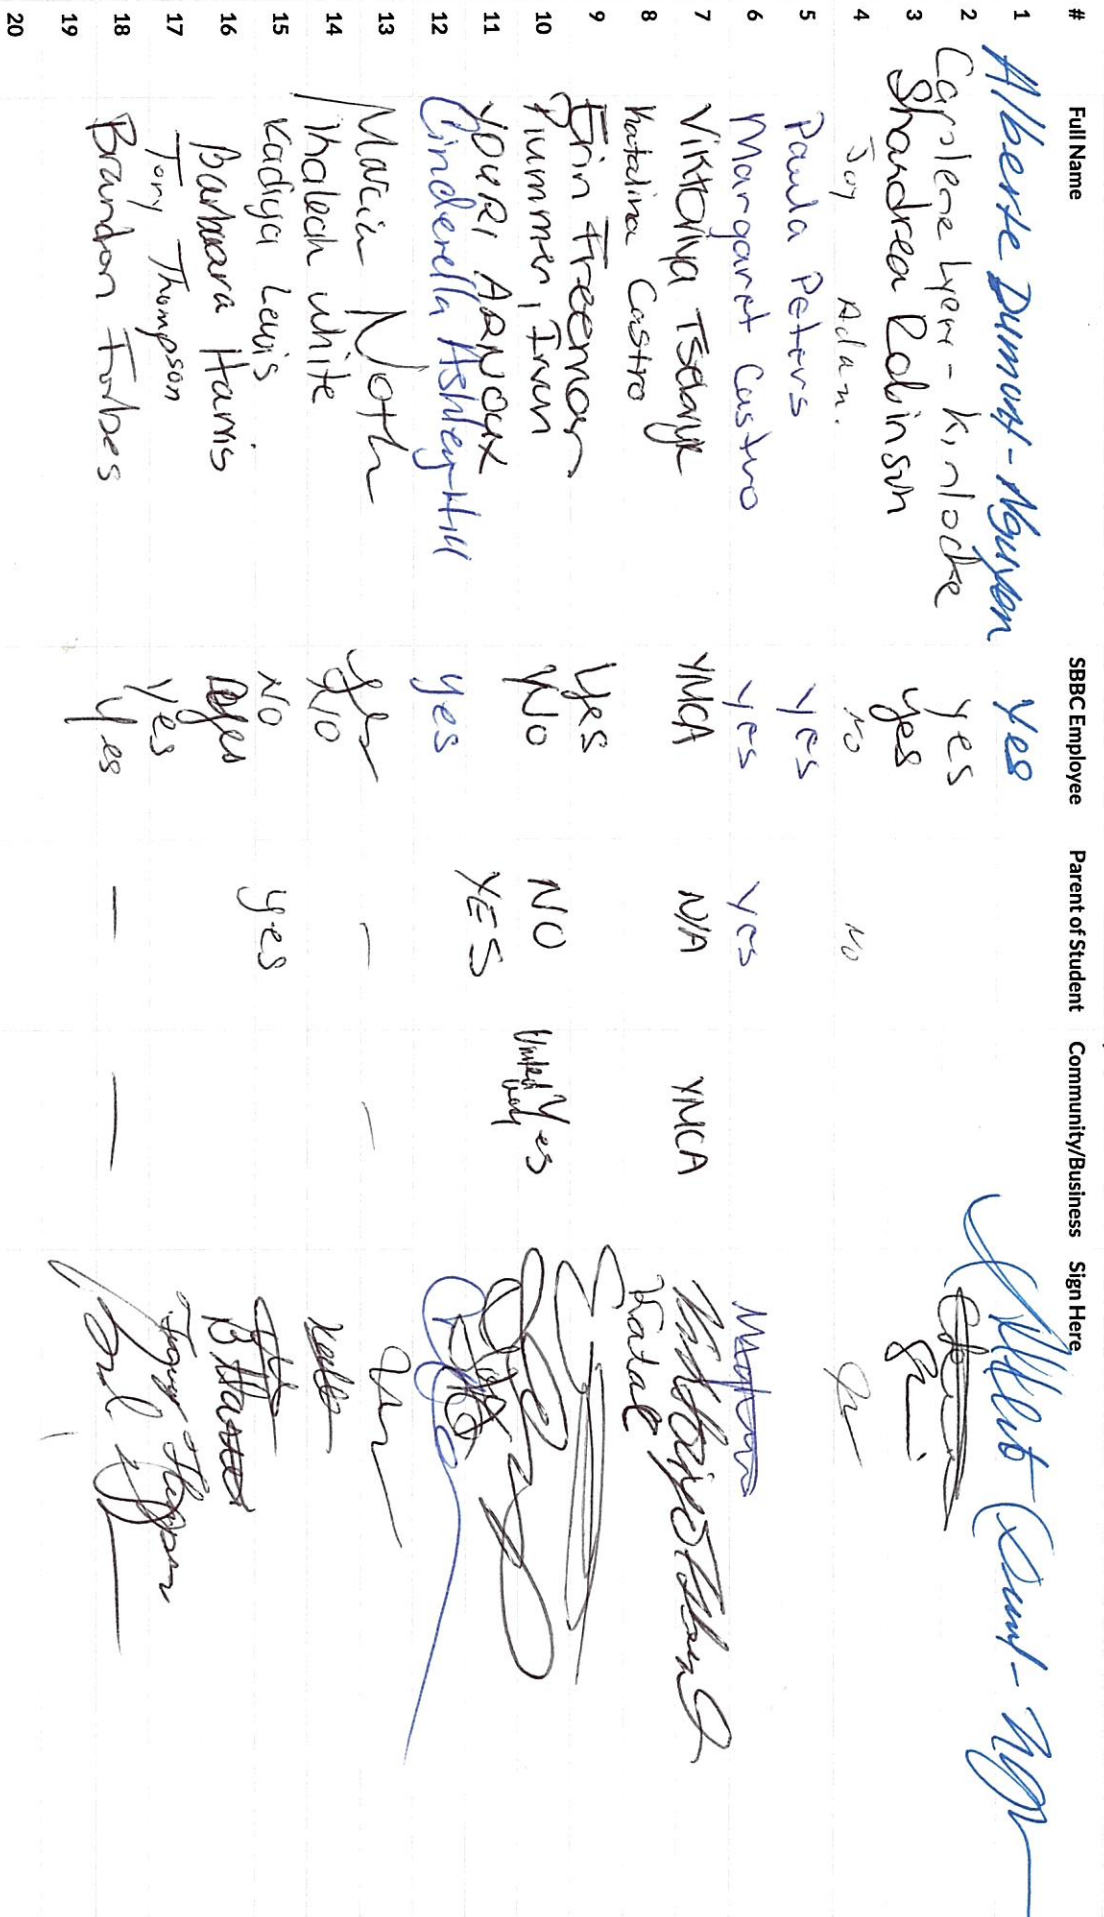 # Full Name SBBC Employee Parent of Student Community/Business Sign Here
1 Alberte Dumont-Nguyen Yes
2 Carolene Lyew - Kinlocke yes
3 Shaundrea Robinson yes
4 Joy Adam. No No
5 Paula Peters yes
6 Margaret Castro yes yes
7 Viktoriya YMCA N/A YMCA
8 Katalina Castro
9 Erin Freeman yes
10 Plummer, Irwin No NO Yes United Way
11 YOURI ARNOUX YES
12 Cinderella Ashley Hill yes
13 Marcia Noth yes – –
14 White No
15 Kadiya Lewis No yes
16 Barbara Harris yes
17 Tony Thompson yes
18 Brandon Forbes yes — —
19
20